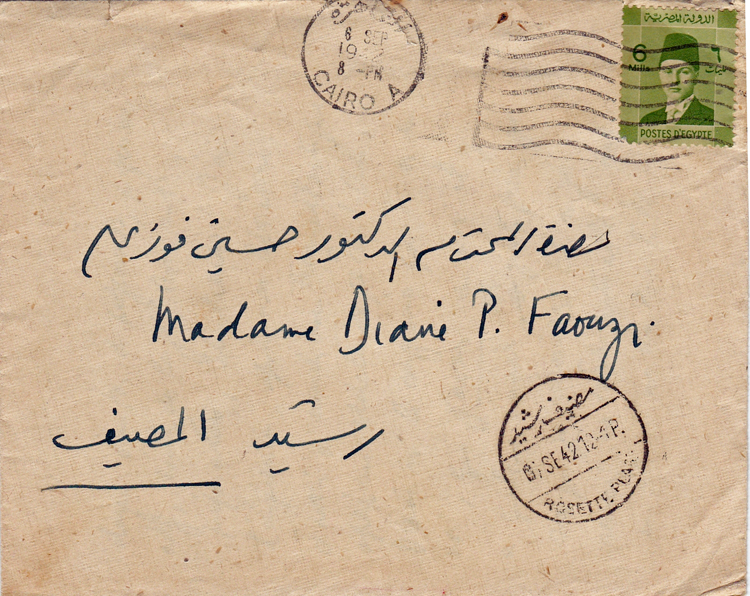 6 SEP
19
8 PM
CAIRO A
الدولة المصرية
6 ٦
Mills مليمات
POSTES D'EGYPTE
حضرة المحترم الدكتور حسين فوزي
Madame Diane P. Faouzi.
رشيد المصيف
مصيف رشيد
SE 42
ROSETTE PLAGE